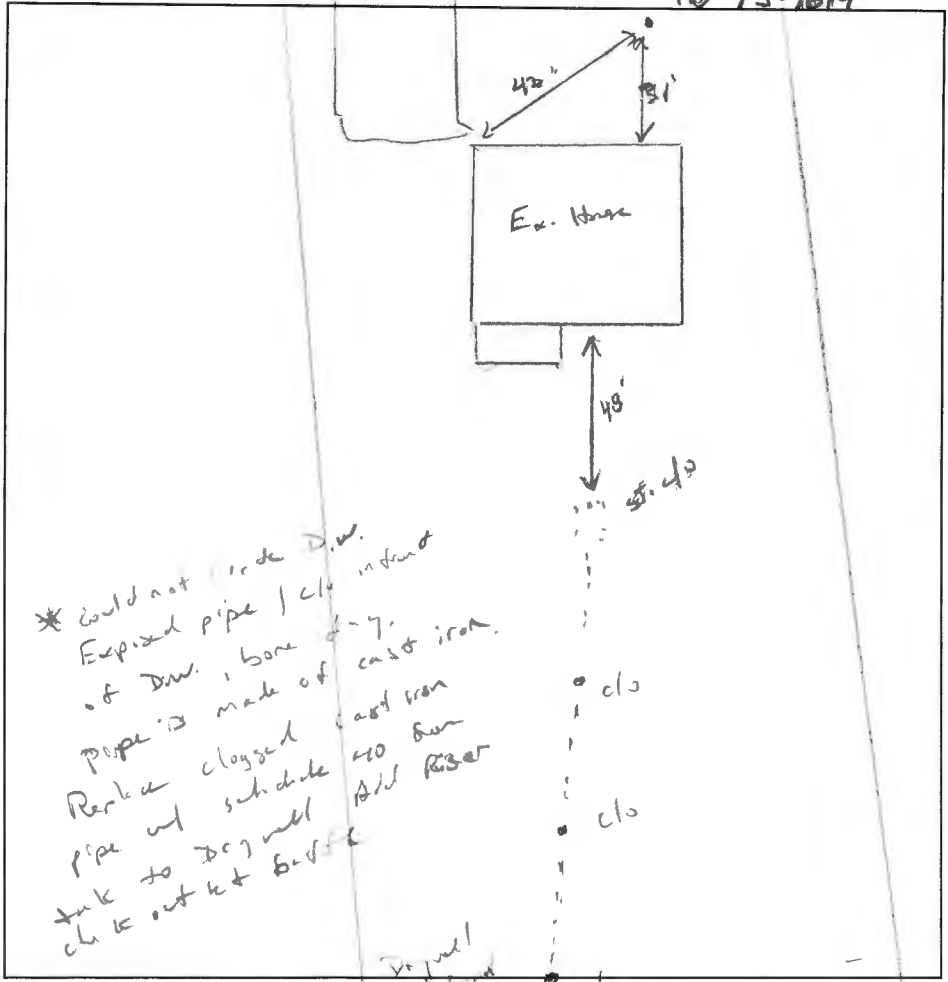 42'
31'
Ex. House
48'
s.t. c/o
* could not D.W.
Exposed pipe / c/o in front
of D.W. , bone dry.
pipe is made of cast iron.
Replace clogged cast iron
pipe w/ schedule 40 from
tank to Drywell Add Riser
check outlet baffle
c/o
c/o
Drywell